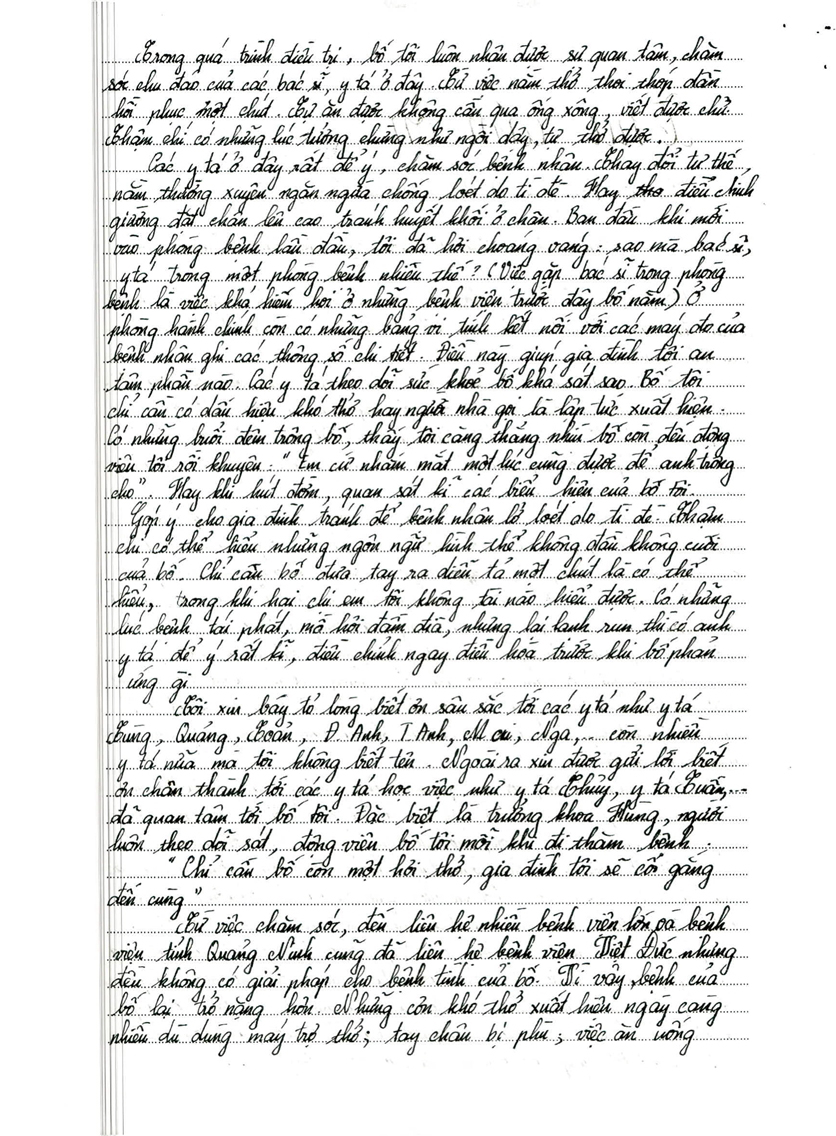 Trong quá trình điều trị, bố tôi luôn nhận được sự quan tâm, chăm
sóc chu đáo của các bác sĩ, y tá ở đây. Từ việc nằm thở thoi thóp dần
hồi phục một chút. Tự ăn được không cần qua ống xông, viết được chữ.
Thậm chí có những lúc tưởng chừng như ngồi dậy, tự thở được.
Các y tá ở đây rất để ý, chăm sóc bệnh nhân. Thay đổi tư thế
nằm thường xuyên ngăn ngừa chống loét do tì đè. Hay điều chỉnh
giường đặt chân lên cao tránh huyết khối ở chân. Ban đầu khi mới
vào phòng bệnh lần đầu, tôi đã hơi choáng váng: sao mà bác sĩ,
y tá trong một phòng bệnh nhiều thế? (Việc gặp bác sĩ trong phòng
bệnh là việc khá hiếm hoi ở những bệnh viện trước đây bố nằm) Ở
phòng hành chính còn có những bảng vi tính kết nối với các máy đo của
bệnh nhân ghi các thông số chi tiết. Điều này giúp gia đình tôi an
tâm phần nào. Các y tá theo dõi sức khoẻ bố khá sát sao. Bố tôi
chỉ cần có dấu hiệu khó thở hay người nhà gọi là lập tức xuất hiện.
Có những buổi đêm trông bố, thấy tôi căng thẳng nhìn bố còn đến động
viên tôi rồi khuyên: "Em cứ nhắm mắt một lúc cũng được để anh trông
cho". Hay khi hút đờm, quan sát kĩ các biểu hiện của bố tôi.
Góp ý cho gia đình tránh để bệnh nhân lở loét do tì đè. Thậm
chí có thể hiểu những ngôn ngữ hình thể không đầu không cuối
của bố. Chỉ cần bố đưa tay ra diễn tả một chút là có thể
hiểu, trong khi hai chị em tôi không tài nào hiểu được. Có những
lúc bệnh tái phát, mồ hôi đầm đìa, nhưng lại lạnh run thì có anh
y tá để ý rất kĩ, điều chỉnh ngay điều hoà trước khi bố phản
ứng gì.
Tôi xin bày tỏ lòng biết ơn sâu sắc tới các y tá như y tá
Tùng, Quảng, Toản, Đ. Anh, T. Anh, Mai, Nga,.. còn nhiều
y tá nữa mà tôi không biết tên. Ngoài ra xin được gửi lời biết
ơn chân thành tới các y tá học việc như y tá Thuỷ, y tá Tuấn,...
đã quan tâm tới bố tôi. Đặc biệt là trưởng khoa Hùng, người
luôn theo dõi sát, động viên bố tôi mỗi khi đi thăm bệnh:
"Chỉ cần bố còn một hơi thở, gia đình tôi sẽ cố gắng
đến cùng"
Từ việc chăm sóc, đến liên hệ nhiều bệnh viện lớn và bệnh
viện tỉnh Quảng Ninh cũng đã liên hệ bệnh viện Việt Đức nhưng
đều không có giải pháp cho bệnh tình của bố. Vì vậy, bệnh của
bố lại trở nặng hơn. Những cơn khó thở xuất hiện ngày càng
nhiều dù dùng máy trợ thở; tay chân bị phù; việc ăn uống